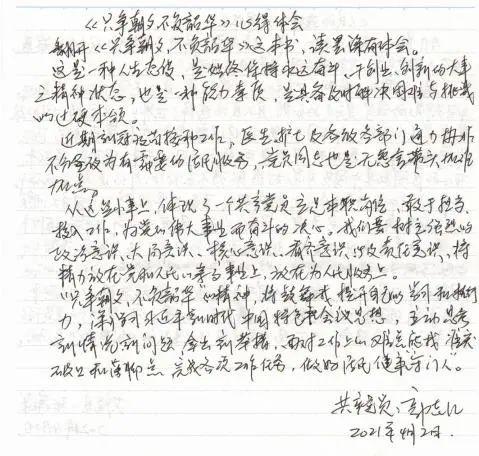 《只争朝夕不负韶华》心得体会
翻开《只争朝夕,不负韶华》这本书,读罢深有体会。
这是一种人生态度,是始终保持永远奋斗、干创业、创新的大事
之精神状态,也是一种能力素质,是具备及时解决困难与挑战
的过硬本领。
近期新冠疫苗接种工作,医生护士及各级各部门通力
为有需要的居民服务,党员同志也是无怨言带头
加班。
从这些小事上,体现了一个共产党员立足本职岗位,敢于担当、
投入工作,为党的伟大事业而奋斗的决心。我们要树立强烈的
政治意识、大局意识、核心意识、看齐意识,以及责任意识,将
精力放在党和人民的事业上,放在为人民服务上。
"只争朝夕,不负韶华"的精神,将鼓舞我提升自己的学习和执行
力,深入学习习近平新时代中国特色社会主义思想,主动思考
新情况新问题,拿出新举措,面对工作上的难
完成各项工作任务,做好居民健康守门人。
共产党员:
2021年4月2日.